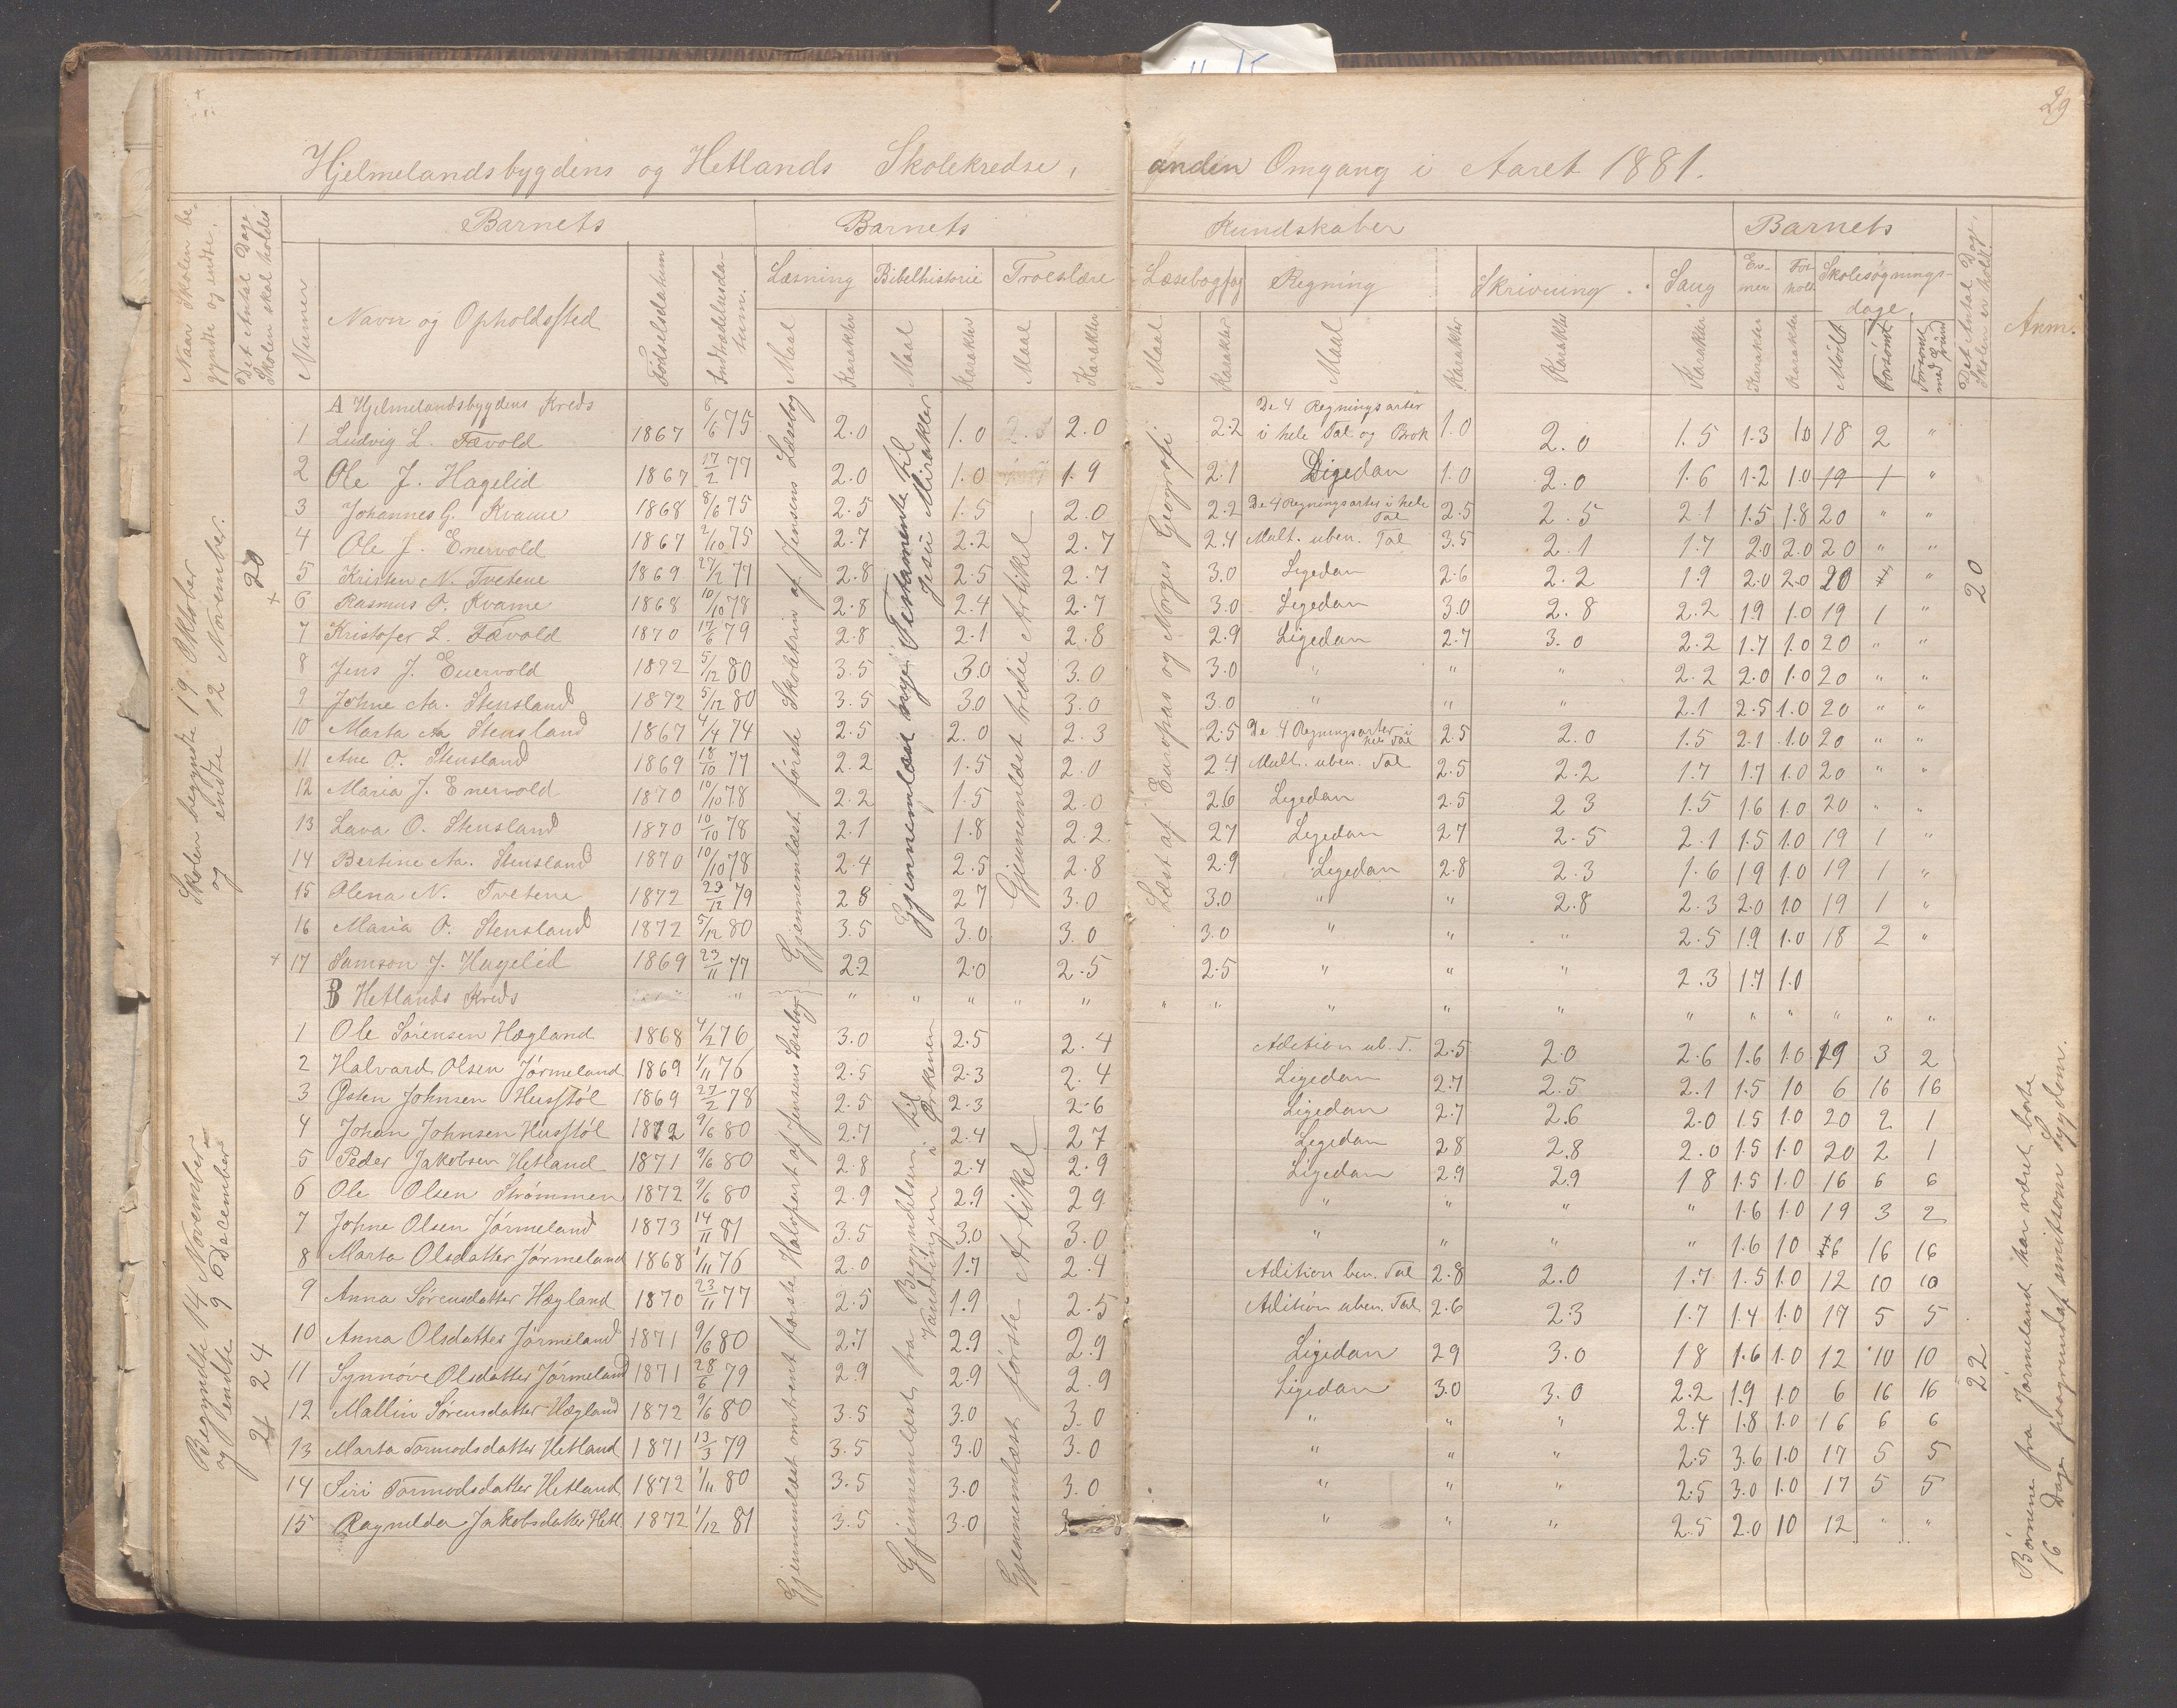 29
Hjelmelandsbygdens og Hetlands Skolekredse, anden Omgang i Aaret 1881.
Naar Skolen begyndte og endte.
Det Antal Dage Skolen skal holdes
Barnets
Barnets Kundskaber
Barnets
Det Antal Dage Skolen er holdt
Anm.
Numer
Navn og Opholdssted
Fødselsdatum
Indtrædelsesdatum.
Læsning
Bibelhistorie
Troeslære
Læsebogfag
Regning
Skrivning
Sang
Evner
Forhold
Skolesøgningsdage
Maal Karakter Maal Karakter Maal Karakter Maal Karakter Maal Karakter Karakter Karakter Karakter Karakter Mødt Forsømt Forsømt med Grund
Skolen begyndte 19 Oktober og endte 12 November.
20
Gjennemlæst første Skoletrin af Jensens Læsebog
Gjennemlæst nye Testamente til Jesu Mirakler
Gjennemlæst tredie Artikel
Læst af Europas og Norges Geografi
20
A Hjelmelandsbygdens Kreds
1 Ludvig L. Fævold 1867 8/6 75 2.0 1.0 2.0 2.2 De 4 Regningsarter i hele Tal og Brøk 1.0 2.0 1.5 1.3 1.0 18 2 "
2 Ole J. Hagelid 1867 17/2 77 2.0 1.0 1.9 2.1 Ligedan 1.0 2.0 1.6 1.2 1.0 19 1 "
3 Johannes G. Kvame 1868 8/6 75 2.5 1.5 2.0 2.2 De 4 Regningsarter i hele Tal 2.5 2.5 2.1 1.5 1.8 20 " "
4 Ole J. Enervold 1867 2/10 75 2.7 2.2 2.7 2.4 Mult. uben. Tal 3.5 2.1 1.7 2.0 2.0 20 " "
5 Kristen N. Tvetene 1869 27/2 77 2.8 2.5 2.7 3.0 Ligedan 2.6 2.2 1.9 2.0 2.0 20 "
+ 6 Rasmus O. Kvame 1868 10/10 78 2.8 2.4 2.7 3.0 Ligedan 3.0 2.8 2.2 1.9 1.0 19 1 "
7 Kristofer L. Fævold 1870 17/6 79 2.8 2.1 2.8 2.9 Ligedan 2.7 3.0 2.2 1.7 1.0 20 " "
8 Jens J. Enervold 1872 5/12 80 3.5 3.0 3.0 3.0 " " " 2.2 2.0 1.0 20 " "
9 Johne Aa. Stensland 1872 5/12 80 3.5 3.0 3.0 3.0 " " " 2.1 2.5 1.0 20 " "
10 Marta Aa Stensland 1867 4/4 74 2.5 2.0 2.3 2.5 De 4 Regningsarter i hele Tal 2.5 2.0 1.5 2.1 1.0 20 " "
11 Ane O. Stensland 1869 18/10 77 2.2 1.5 2.0 2.4 Mult. uben. Tal 2.5 2.2 1.7 1.7 1.0 20 " "
12 Maria J. Enervold 1870 10/10 78 2.2 1.5 2.0 2.6 Ligedan 2.5 2.3 1.5 1.6 1.0 20 " "
13 Lava O. Stensland 1870 10/10 78 2.1 1.8 2.2 2.7 Ligedan 2.7 2.5 2.1 1.5 1.0 19 1 "
14 Bertine Aa. Stensland 1870 10/10 78 2.4 2.5 2.8 2.9 Ligedan 2.8 2.3 1.6 1.9 1.0 19 1 "
15 Olena N. Tvetene 1872 29/12 79 2.8 2.7 3.0 3.0 " " 2.8 2.3 2.0 1.0 19 1 "
16 Maria O. Stensland 1872 5/12 80 3.5 3.0 3.0 3.0 " " " 2.5 1.9 1.0 18 2 "
+ 17 Samson J. Hagelid 1869 23/11 77 2.2 2.0 2.5 2.5 " " " 2.3 1.7 1.0
B Hetlands Kreds
Begyndte 14 November og endte 9 December
24
Gjennemlæst omtrent første Halvpart af Jensens Læsebog
Gjennemlæst fra Begyndelsen til Vandringen i Ørkenen
Gjennemlæst første Artikel
22
Børnene fra Jørmeland har været borte 16 Dage paagrundaf smitsom Sygdom.
1 Ole Sørensen Hægland 1868 4/2 76 3.0 2.5 2.4 Adition ub. T. 2.5 2.0 2.6 1.6 1.0 19 3 2
2 Halvard Olsen Jørmeland 1869 1/11 76 2.5 2.3 2.4 Ligedan 2.7 2.5 2.1 1.5 10 6 16 16
3 Østen Johnsen Husstøl 1869 27/2 78 2.5 2.3 2.6 Ligedan 2.7 2.6 2.0 1.5 1.0 20 2 1
4 Johan Johnsen Husstøl 1872 9/6 80 2.7 2.4 2.7 Ligedan 2.8 2.8 2.0 1.5 1.0 20 2 1
5 Peder Jakobsen Hetland 1871 9/6 80 2.8 2.4 2.9 Ligedan 2.9 2.9 1.8 1.5 1.0 16 6 6
6 Ole Olsen Strømmen 1872 9/6 80 2.9 2.9 2.9 " " " " 1.6 1.0 19 3 2
7 Johne Olsen Jørmeland 1873 14/11 81 3.5 3.0 3.0 " " " " 1.6 10 6 16 16
8 Marta Olsdatter Jørmeland 1868 1/11 76 2.0 1.7 2.4 Adition ben. Tal 2.8 2.0 1.7 1.5 1.0 12 10 10
9 Anna Sørensdatter Hægland 1870 23/11 77 2.5 1.9 2.5 Adition uben. Tal 2.6 2.3 1.7 1.4 1.0 17 5 5
10 Anna Olsdatter Jørmeland 1871 9/6 80 2.7 2.9 2.9 Ligedan 2.9 3.0 1.8 1.6 1.0 12 10 10
11 Synnøve Olsdatter Jørmeland 1871 28/6 79 2.9 2.9 2.9 Ligedan 3.0 3.0 2.2 1.9 1.0 6 16 16
12 Mallin Sørensdatter Hægland 1872 9/6 80 3.5 3.0 3.0 " " " 2.4 1.8 1.0 16 6 6
13 Marta Tormodsdatter Hetland 1871 13/3 79 3.5 3.0 3.0 " " " 2.5 3.6 1.0 17 5 5
14 Siri Tormodsdatter Hetland 1872 1/11 80 3.5 3.0 3.0 " " " 2.5 3.0 1.0 17 5 5
15 Ragnilda Jakobsdatter Hetl. 1872 1/12 81 3.5 3.0 " " " 2.5 2.0 10 12 " "